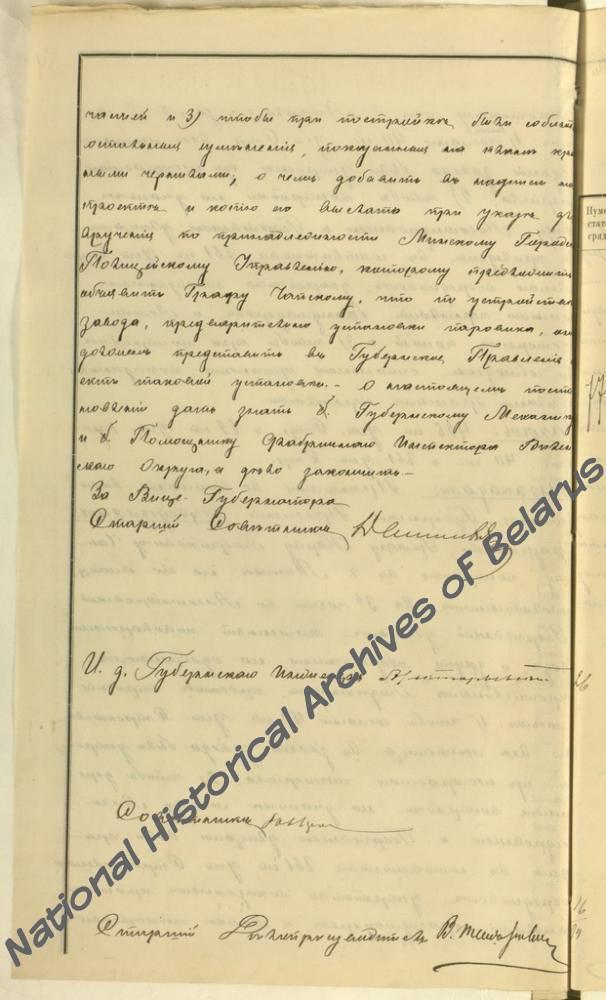 частей и 3) чтобы при постройке были соблю
указанныя на планѣ кра
сными чернилами, о чемъ добавить въ надписи на
проектѣ и копію его выслать при указѣ для
врученія по принадлежности Минскому Городс
Полицейскому Управленію, которому предписать
объявить Графу Чапскому, что по устройствѣ
завода, предварительно установки паровика, онъ
долженъ представить въ Губернское Правленіе
ектъ таковой установки. - О настоящемъ поста
новленіи дать знать Г. Губернскому Механику
и Г. Помощнику Фабричнаго Инспектора Вилен
скаго Округа, а дѣло закончить. -
За Вице-Губернатора
Старшій Совѣтникъ
И. д. Губернскаго Инженера
Совѣтникъ
Старшій Дѣлопроизводитель В.
Нуме
стат
ряд
17
16
National Historical Archives of Belarus